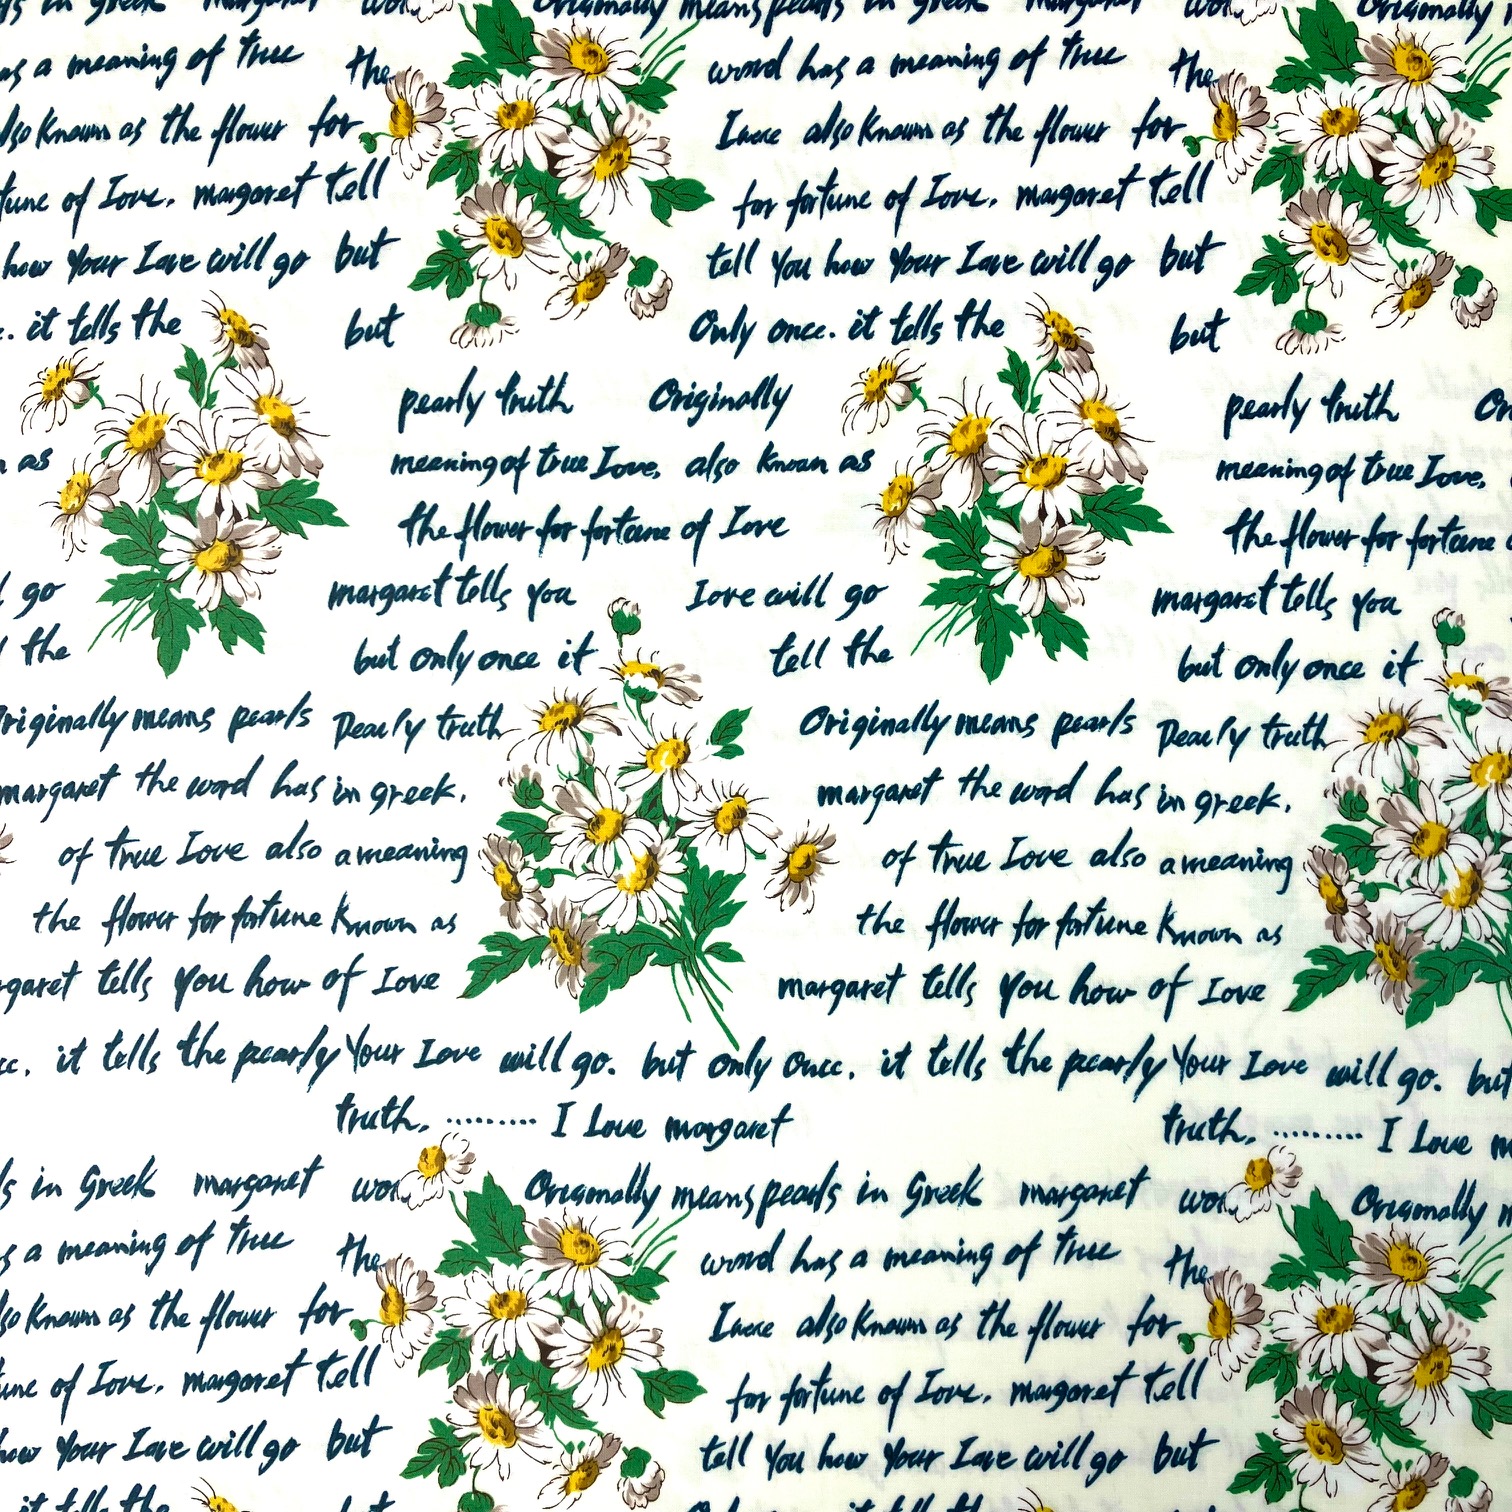 Originally means pearls in Greek margaret Originally
as a meaning of true the word has a meaning of true the
also known as the flower for Iove also known as the flower for
tune of Iove. margaret tell for fortune of Iove. margaret tell
how Your Iove will go but tell You how Your Iove will go but
it tells the but Only once. it tells the but
pearly truth Originally pearly truth
as meaning of true Iove, also known as meaning of true Iove,
the flower for fortune of Iove the flower for fortune
go margaret tells you Iove will go margaret tells you
the but only once it tell the but only once it
Originally means pearls Pearly truth Originally means pearls Pearly truth
margaret the word has in greek. margaret the word has in greek.
of true Iove also a meaning of true Iove also a meaning
the flower for fortune Known as the flower for fortune Known as
margaret tells You how of Iove margaret tells You how of Iove
it tells the pearly Your Iove will go. but only once. it tells the pearly Your Iove will go. but
truth. ......... I Love margaret truth. ......... I Love
in Greek margaret Originally means pearls in Greek margaret Originally
as a meaning of true the word has a meaning of true the
also known as the flower for Iove also known as the flower for
tune of Iove. margaret tell for fortune of Iove. margaret tell
how Your Iove will go but tell You how Your Iove will go but
it tells the but